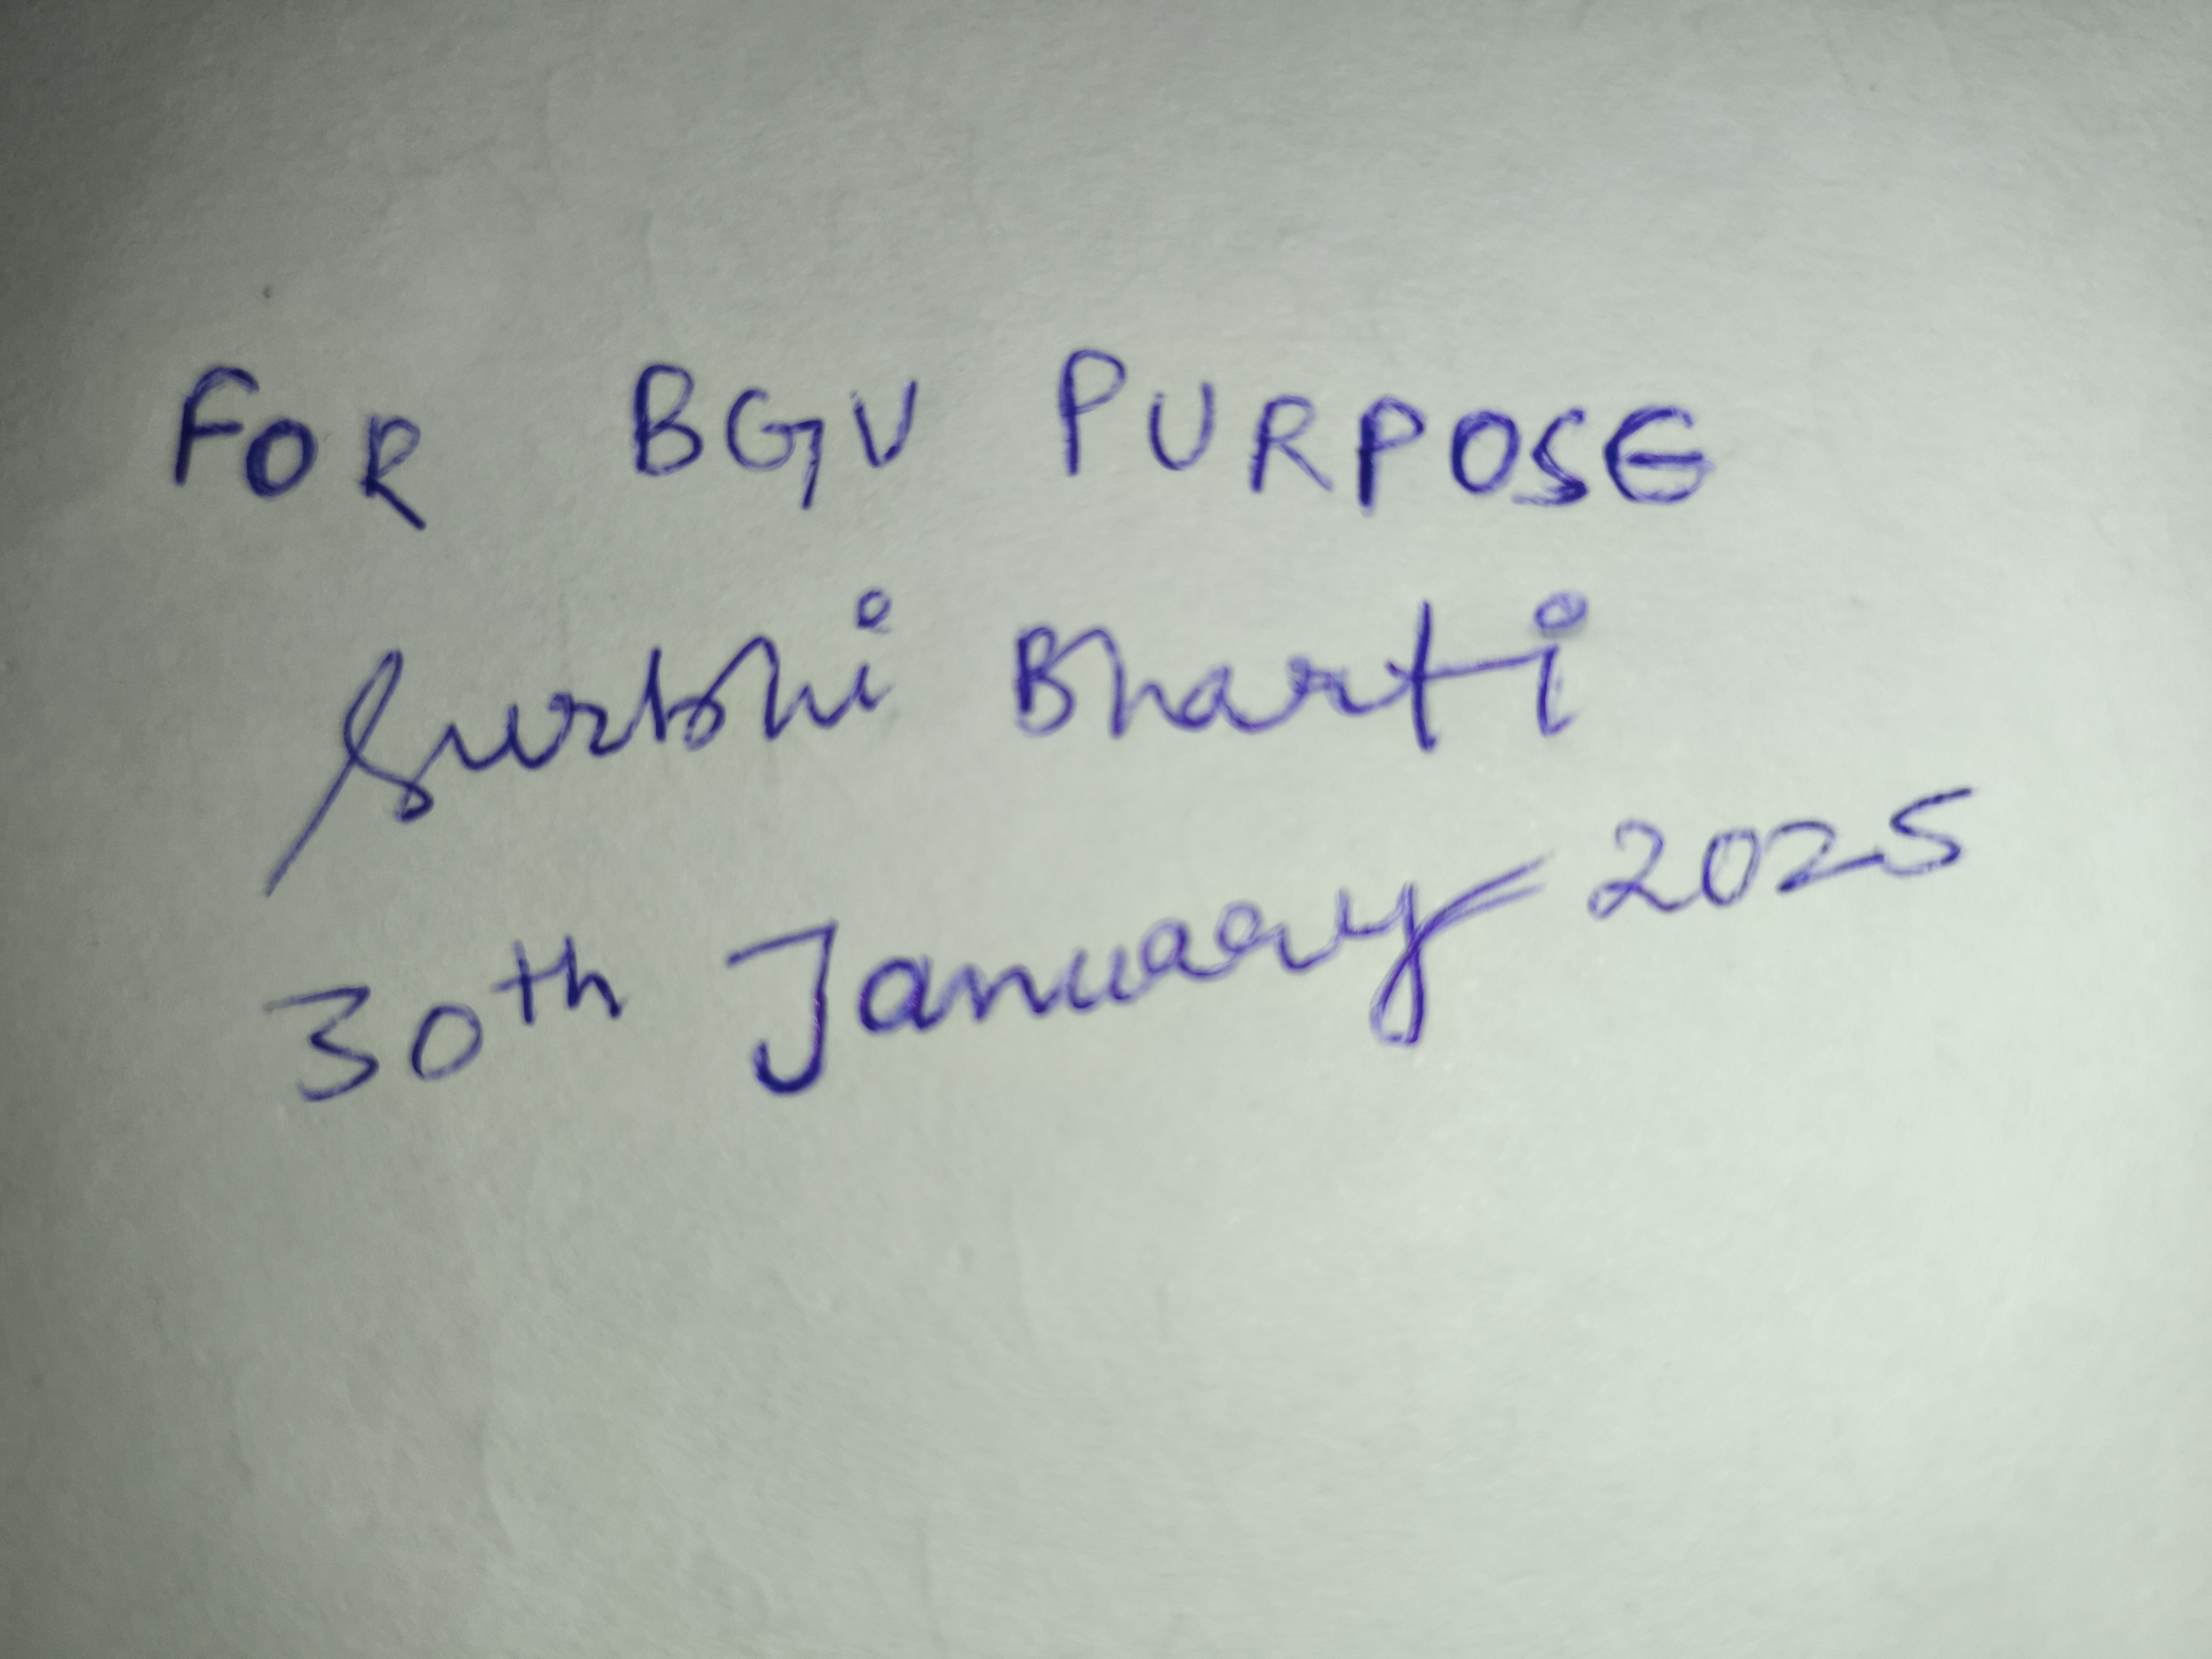 FOR BGV PURPOSE
Surbhi Bharti
30th January 2025